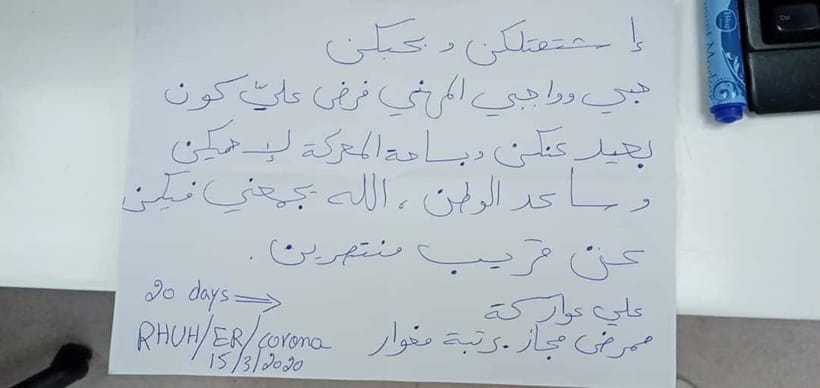 إشتقتلكن و بحبكن
حبي وواجبي المهني فرض عليّ كون
بعيد عنكن وبساحة المعركة لإحميكن
وساعد الوطن، الله يجمعني فيكن
عن قريب منتصرين.
علي عواركة
ممرض مجاز برتبة مغوار
20 days ⇒
RHUH/ER/corona
15/3/2020